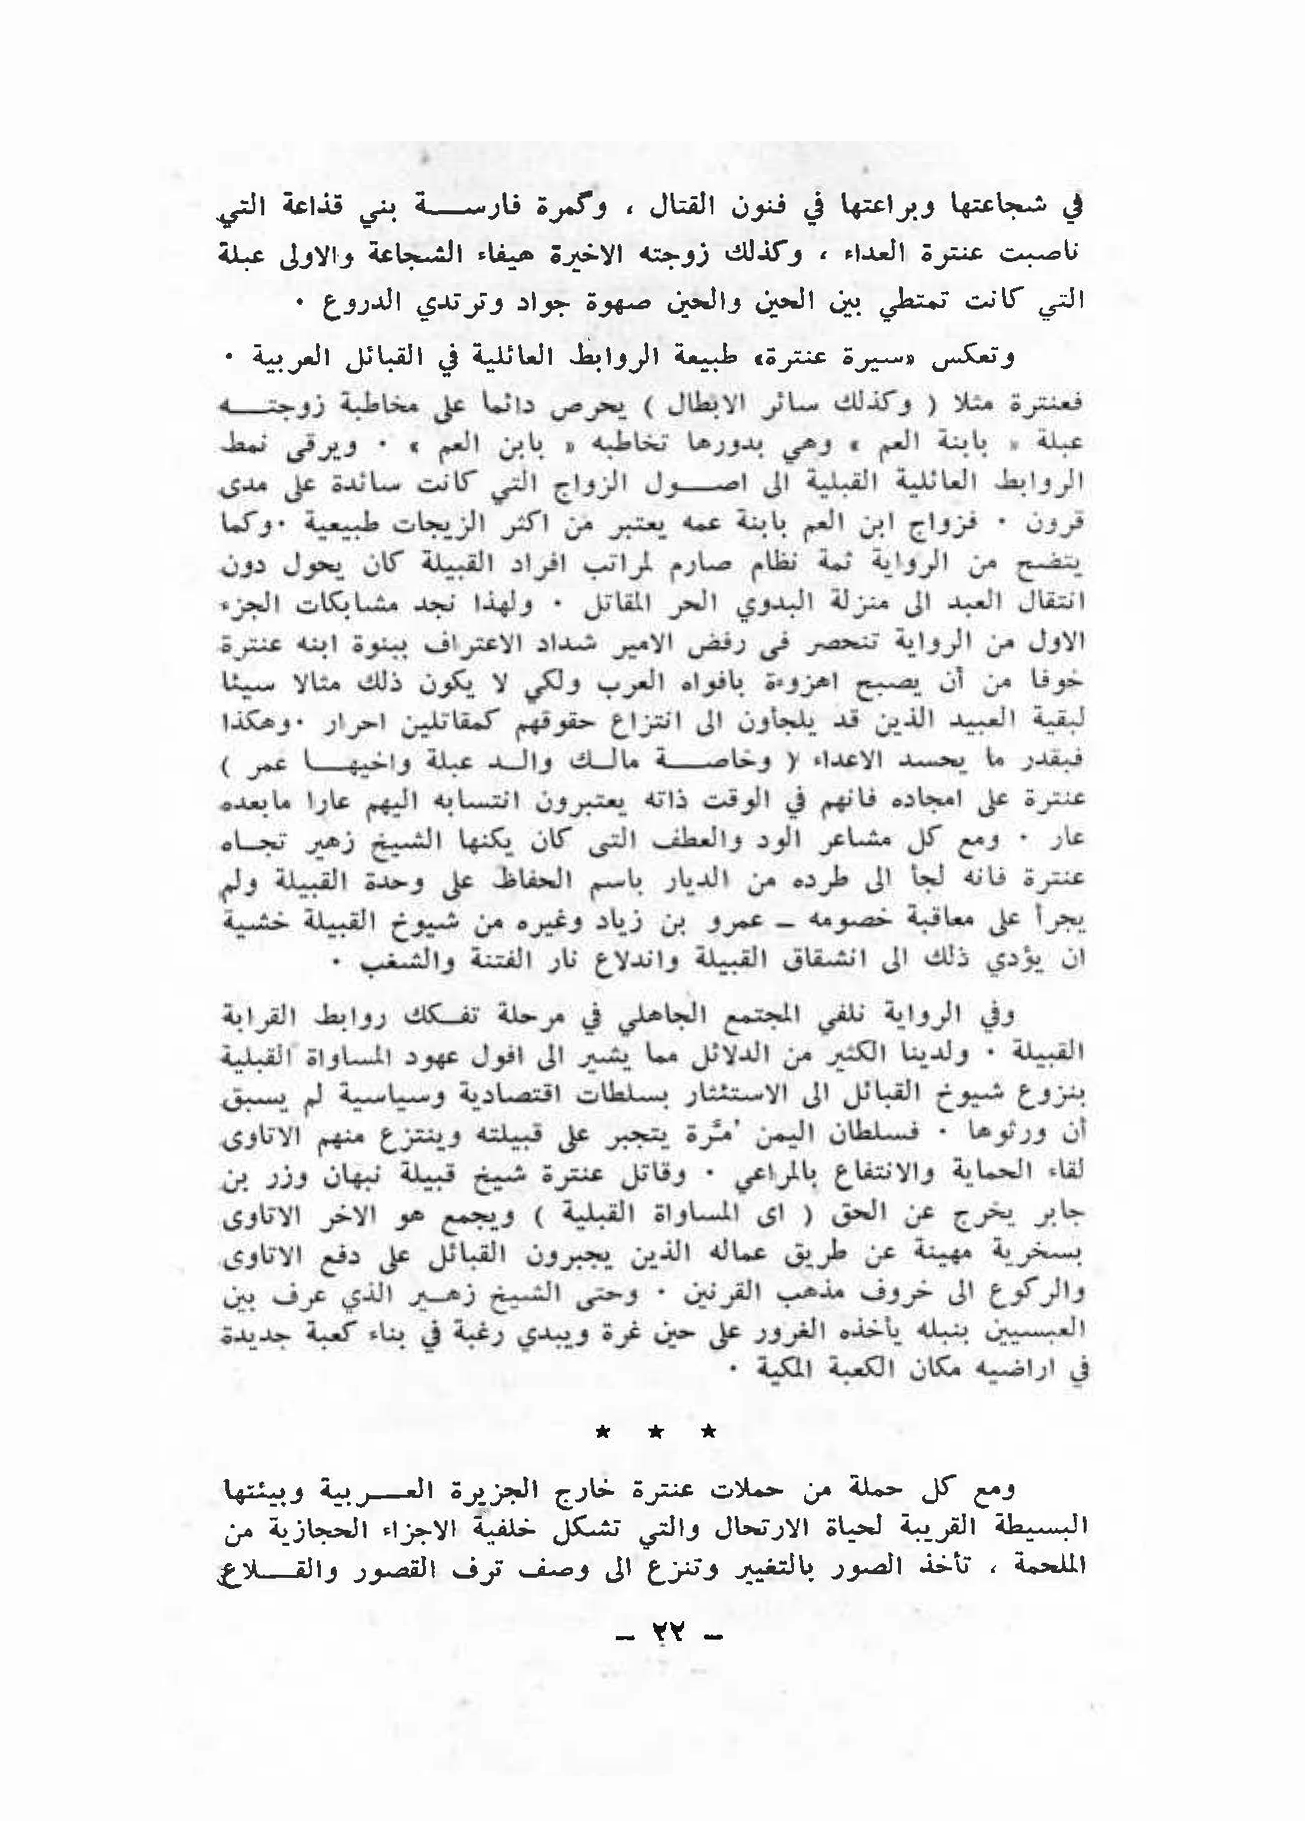 في شجاعتها وبراعتها في فنون القتال ، وكمرة فارسة بني قذاعة التي
ناصبت عنترة العداء ، وكذلك زوجته الاخيرة هيفاء الشجاعة والاولى عبلة
التي كانت تمتطي بين الحين والحين صهوة جواد وترتدي الدروع .
وتعكس «سيرة عنترة» طبيعة الروابط العائلية في القبائل العربية .
فعنترة مثلا ( وكذلك سائر الابطال ) يحرص دائما على مخاطبة زوجته
عبلة « بابنة العم » وهي بدورها تخاطبه « بابن العم » . ويرقى نمط
الروابط العائلية القبلية الى اصول الزواج التي كانت سائدة على مدى
قرون . فزواج ابن العم بابنة عمه يعتبر من اكثر الزيجات طبيعية . وكما
يتضح من الرواية ثمة نظام صارم لمراتب افراد القبيلة كان يحول دون
انتقال العبد الى منزلة البدوي الحر المقاتل . ولهذا نجد مشابكات الجزء
الاول من الرواية تنحصر في رفض الامير شداد الاعتراف ببنوة ابنه عنترة
خوفا من أن يصبح اهزوءة بافواه العرب ولكي لا يكون ذلك مثالا سيئا
لبقية العبيد الذين قد يلجأون الى انتزاع حقوقهم كمقاتلين احرار . وهكذا
فبقدر ما يحسد الاعداء ( وخاصة مالك والد عبلة واخيها عمر )
عنترة على امجاده فانهم في الوقت ذاته يعتبرون انتسابه اليهم عارا مابعده
عار . ومع كل مشاعر الود والعطف التى كان يكنها الشيخ زهير تجاه
عنترة فانه لجأ الى طرده من الديار باسم الحفاظ على وحدة القبيلة ولم
يجرأ على معاقبة خصومه ــ عمرو بن زياد وغيره من شيوخ القبيلة خشية
ان يؤدي ذلك الى انشقاق القبيلة واندلاع نار الفتنة والشغب .
وفي الرواية نلفي المجتمع الجاهلي في مرحلة تفكك روابط القرابة
القبيلة . ولدينا الكثير من الدلائل مما يشير الى افول عهود المساواة القبلية
بنزوع شيوخ القبائل الى الاستئثار بسلطات اقتصادية وسياسية لم يسبق
أن ورثوها . فسلطان اليمن مُرَّة يتجبر على قبيلته وينتزع منهم الاتاوى
لقاء الحماية والانتفاع بالمراعي . وقاتل عنترة شيخ قبيلة نبهان وزر بن
جابر يخرج عن الحق ( اى المساواة القبلية ) ويجمع هو الاخر الاتاوى
بسخرية مهينة عن طريق عماله الذين يجبرون القبائل على دفع الاتاوى
والركوع الى خروف مذهب القرنين . وحتى الشيخ زهير الذي عرف بين
العبسيين بنبله يأخذه الغرور على حين غرة ويبدي رغبة في بناء كعبة جديدة
في اراضيه مكان الكعبة المكية .
★ ★ ★
ومع كل حملة من حملات عنترة خارج الجزيرة العربية وبيئتها
البسيطة القريبة لحياة الارتحال والتي تشكل خلفية الاجزاء الحجازية من
الملحمة ، تأخذ الصور بالتغيير وتنزع الى وصف ترف القصور والقلاع
ــ ٢٢ ــ